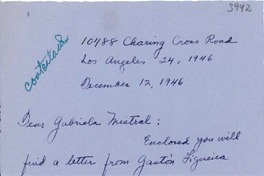 3942
contestada
10488 Charing Cross Road
Los Angeles 24, 1946
December 12, 1946
Dear Gabriela Mistral:
Enclosed you will
find a letter from Gastón Figueira